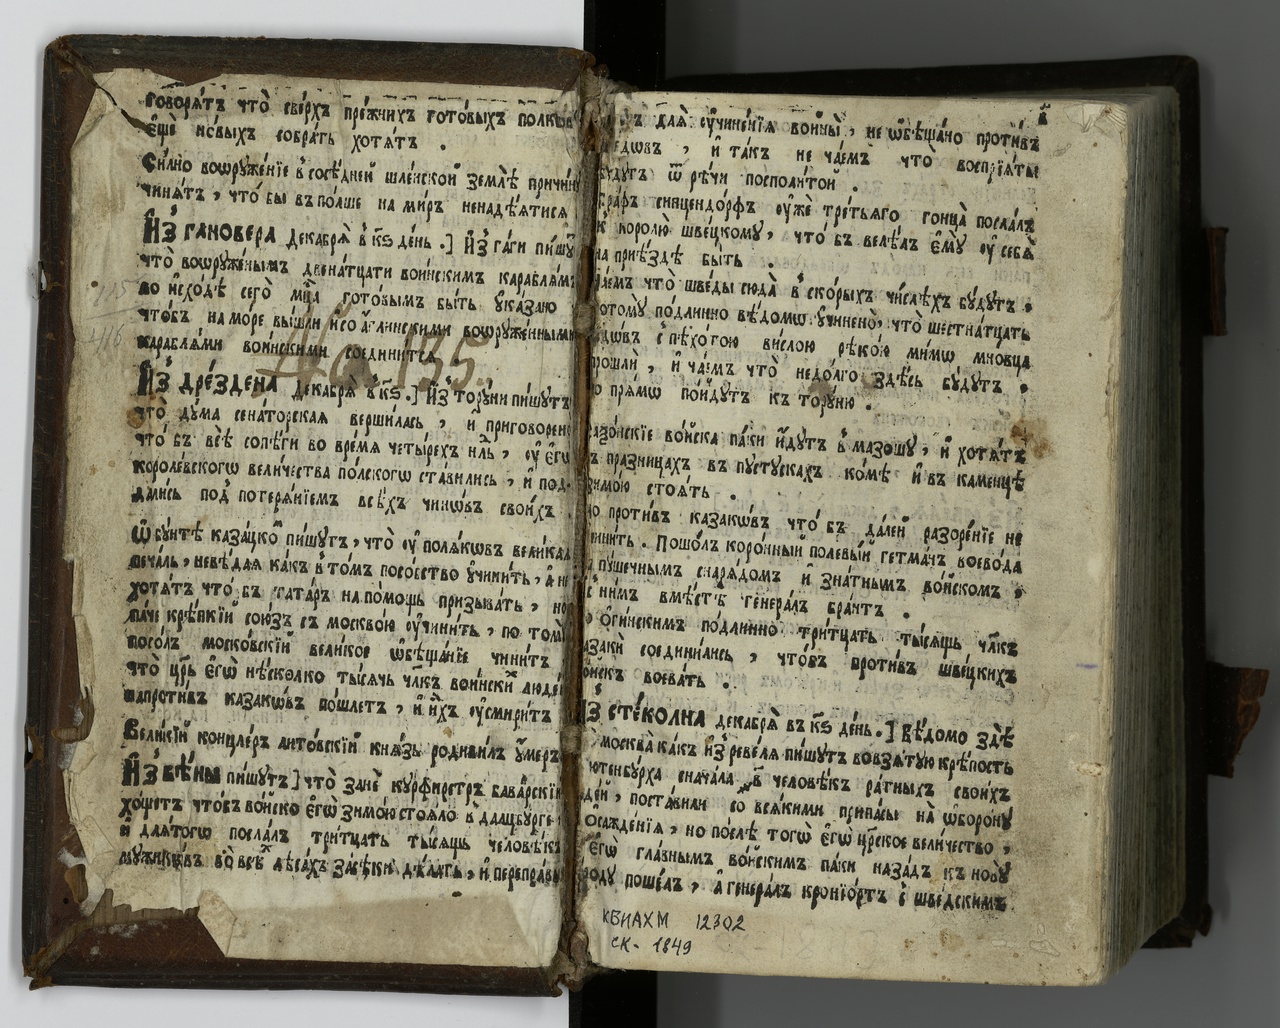 говорѧ́тъ что̀ све́рхъ пре́жнихъ гото́выхъ полко́въ
є҆щѐ но́выхъ собра́ть хотѧ́тъ .
Си́лно воѡрꙋже́нїе в̾сосѣ́дней шле́нской землѣ̀ причинꙋ
чинѧ́тъ , что́ бы въ по́лше на ми́ръ ненадѣ́ѧтисѧ
И҆з̾ га́новера декабрѧ̀ в̾ к҃ѕ де́нь .] И҆з̾ га́ги пи́шꙋтъ
что̀ воѡрꙋже́нымъ двена́тцати во́инскимъ караблѧ́мъ
во и҆схо́дѣ сегѡ̀ мц҃а гото́вымъ бы́ть ᲂу҆ка́зано
что́бъ на мо́ре вы́шли и҆ со а҆глинскими воѡрꙋже́нными
караблѧ́ми во́инскими соедини́тсѧ
№ 135.
115
116
И҆з̾ дре́здена декабрѧ̀ в̾ к҃ѕ .] И҆з̾ то́рꙋни пи́шꙋтъ
что̀ дꙋ́ма сена́торская верши́лась , и҆ приговорено̀
что́ бъ всѣ̀ сопѣ́ги во вре́мѧ четы́рехъ нл҃ь , ᲂу҆ є҆гѡ̀
короле́вскогѡ вели́чества по́лскогѡ ста́вились , и҆ под-
да́лись под̾ потерѧ́нїемъ всѣ́хъ чино́въ свои́хъ .
Ѡ҆ бꙋ́нтѣ каза́цкѡ пи́шꙋтъ , что̀ ᲂу҆ полѧ́ковъ вели́каѧ
печа́ль , невѣ́даѧ ка́къ в̾ то́мъ посо́бство ᲂу҆чини́ть , а҆ не
хотѧ́тъ что́ бъ тата́ръ на по́мощь призыва́ть , но
па́че крѣ́пкїй сою́зъ съ москво́ю ᲂу҆чини́ть , по томꙋ̀
посо́лъ моско́вскїй вели́кое ѡ҆бѣща́нїе чини́тъ
что̀ цр҃ь є҆гѡ̀ нѣ́сколко ты́сѧчь чл҃къ во́ински люде́й
напроти́въ казакѡ́въ пошле́тъ , и҆ и҆́хъ ᲂу҆смири́тъ
Вели́кїй ка́нцлеръ лито́вскїй кнѧ́зь родиви́лъ ᲂу҆́меръ
И҆з̾ вѣ́ны пи́шꙋтъ ] что̀ занѐ кꙋрфи́рстръ бава́рскїй
хо́щетъ что́бъ во́йско є҆гѡ̀ зимо́ю стоѧ́ло в̾
и҆ длѧ́тогѡ посла́лъ три́тцать ты́сѧщь человѣ́къ
мꙋжико́въ во̀ всѣ лѣса́хъ засѣ́ки дѣ́лать , и҆ перепра́вы
длѧ̀ ᲂу҆чине́нїѧ войны̀ , не ѡ҆бѣща́но проти́въ
шве́довъ , и҆ та́къ не ча́емъ что̀ воспрїѧ́ты
бꙋ́дꙋтъ ѿ рѣ́чи посполи́той .
Гра́фъ синцендо́рфъ ᲂу҆жѐ тре́тьѧго гонца̀ посла́лъ
к̾ королю̀ шве́цкомꙋ , что́ бъ велѣ́лъ є҆мꙋ̀ ᲂу҆ себѧ̀
на прїѣ́здѣ бы́ть .
Ча́емъ что̀ шве́ды сюда̀ в̾ ско́рыхъ чи́слѣхъ бꙋ́дꙋтъ ,
потомꙋ̀ по́длинно вѣ́домѡ ᲂу҆чинено̀ , что̀ шестна́тцать
с̾ пѣхо́тою ви́слою рѣко́ю ми́мѡ мно́вца
прошлѝ , и҆ ча́емъ что̀ недо́лго здѣ́сь бꙋ́дꙋтъ ,
но прѧ́мѡ по́йдꙋтъ къ то́рꙋню .
Саѯо́нскїе во́йска па́ки и҆дꙋ́тъ в̾ мазо́шꙋ , и҆ хотѧ́тъ
въ пꙋ́стꙋскахъ ко́мѣ и҆ въ каменцѣ̀
зимо́ю стоѧ́ть .
Но проти́въ казако́въ что́ бъ да́лей разоре́нїе не
чини́ть . Пошо́лъ коро́нный полевы́й ге́тманъ воево́да
с̾ пꙋ́шечнымъ снарѧ́домъ и҆ зна́тнымъ во́йскомъ ,
с̾ ни́мъ вмѣ́стѣ генера́лъ бра́нтъ .
Со ѻ҆ги́нскимъ по́длинно три́тцать ты́сѧщь чл҃къ
каза́ки соедини́лись , что́бъ проти́въ шве́цкихъ
во́йскъ воева́ть .
И҆з̾ сте́колна декабрѧ̀ въ к҃ѕ де́нь .] Вѣ́домо здѣ̀
что̀ москва̀ ка́къ и҆з̾ ре́велѧ пи́шꙋтъ во взѧ́тꙋю крѣ́пость
нотенбꙋ́рха снача́ла в҃ человѣ́къ ра́тныхъ свои́хъ
люде́й , поста́вили со всѧ́кими припа́сы на̀ ѡ҆боро́нꙋ
ѡ҆сажде́нїѧ , но по́слѣ тогѡ̀ є҆гѡ̀ цр҃ское вели́чество ,
є҆гѡ̀ гла́внымъ во́йскимъ па́ки наза́дъ къ но́вꙋ
го́родꙋ поше́лъ , а҆ генера́лъ кронїо́ртъ с̾ шве́дскимъ
КБИАХМ 12302
СК- 1849